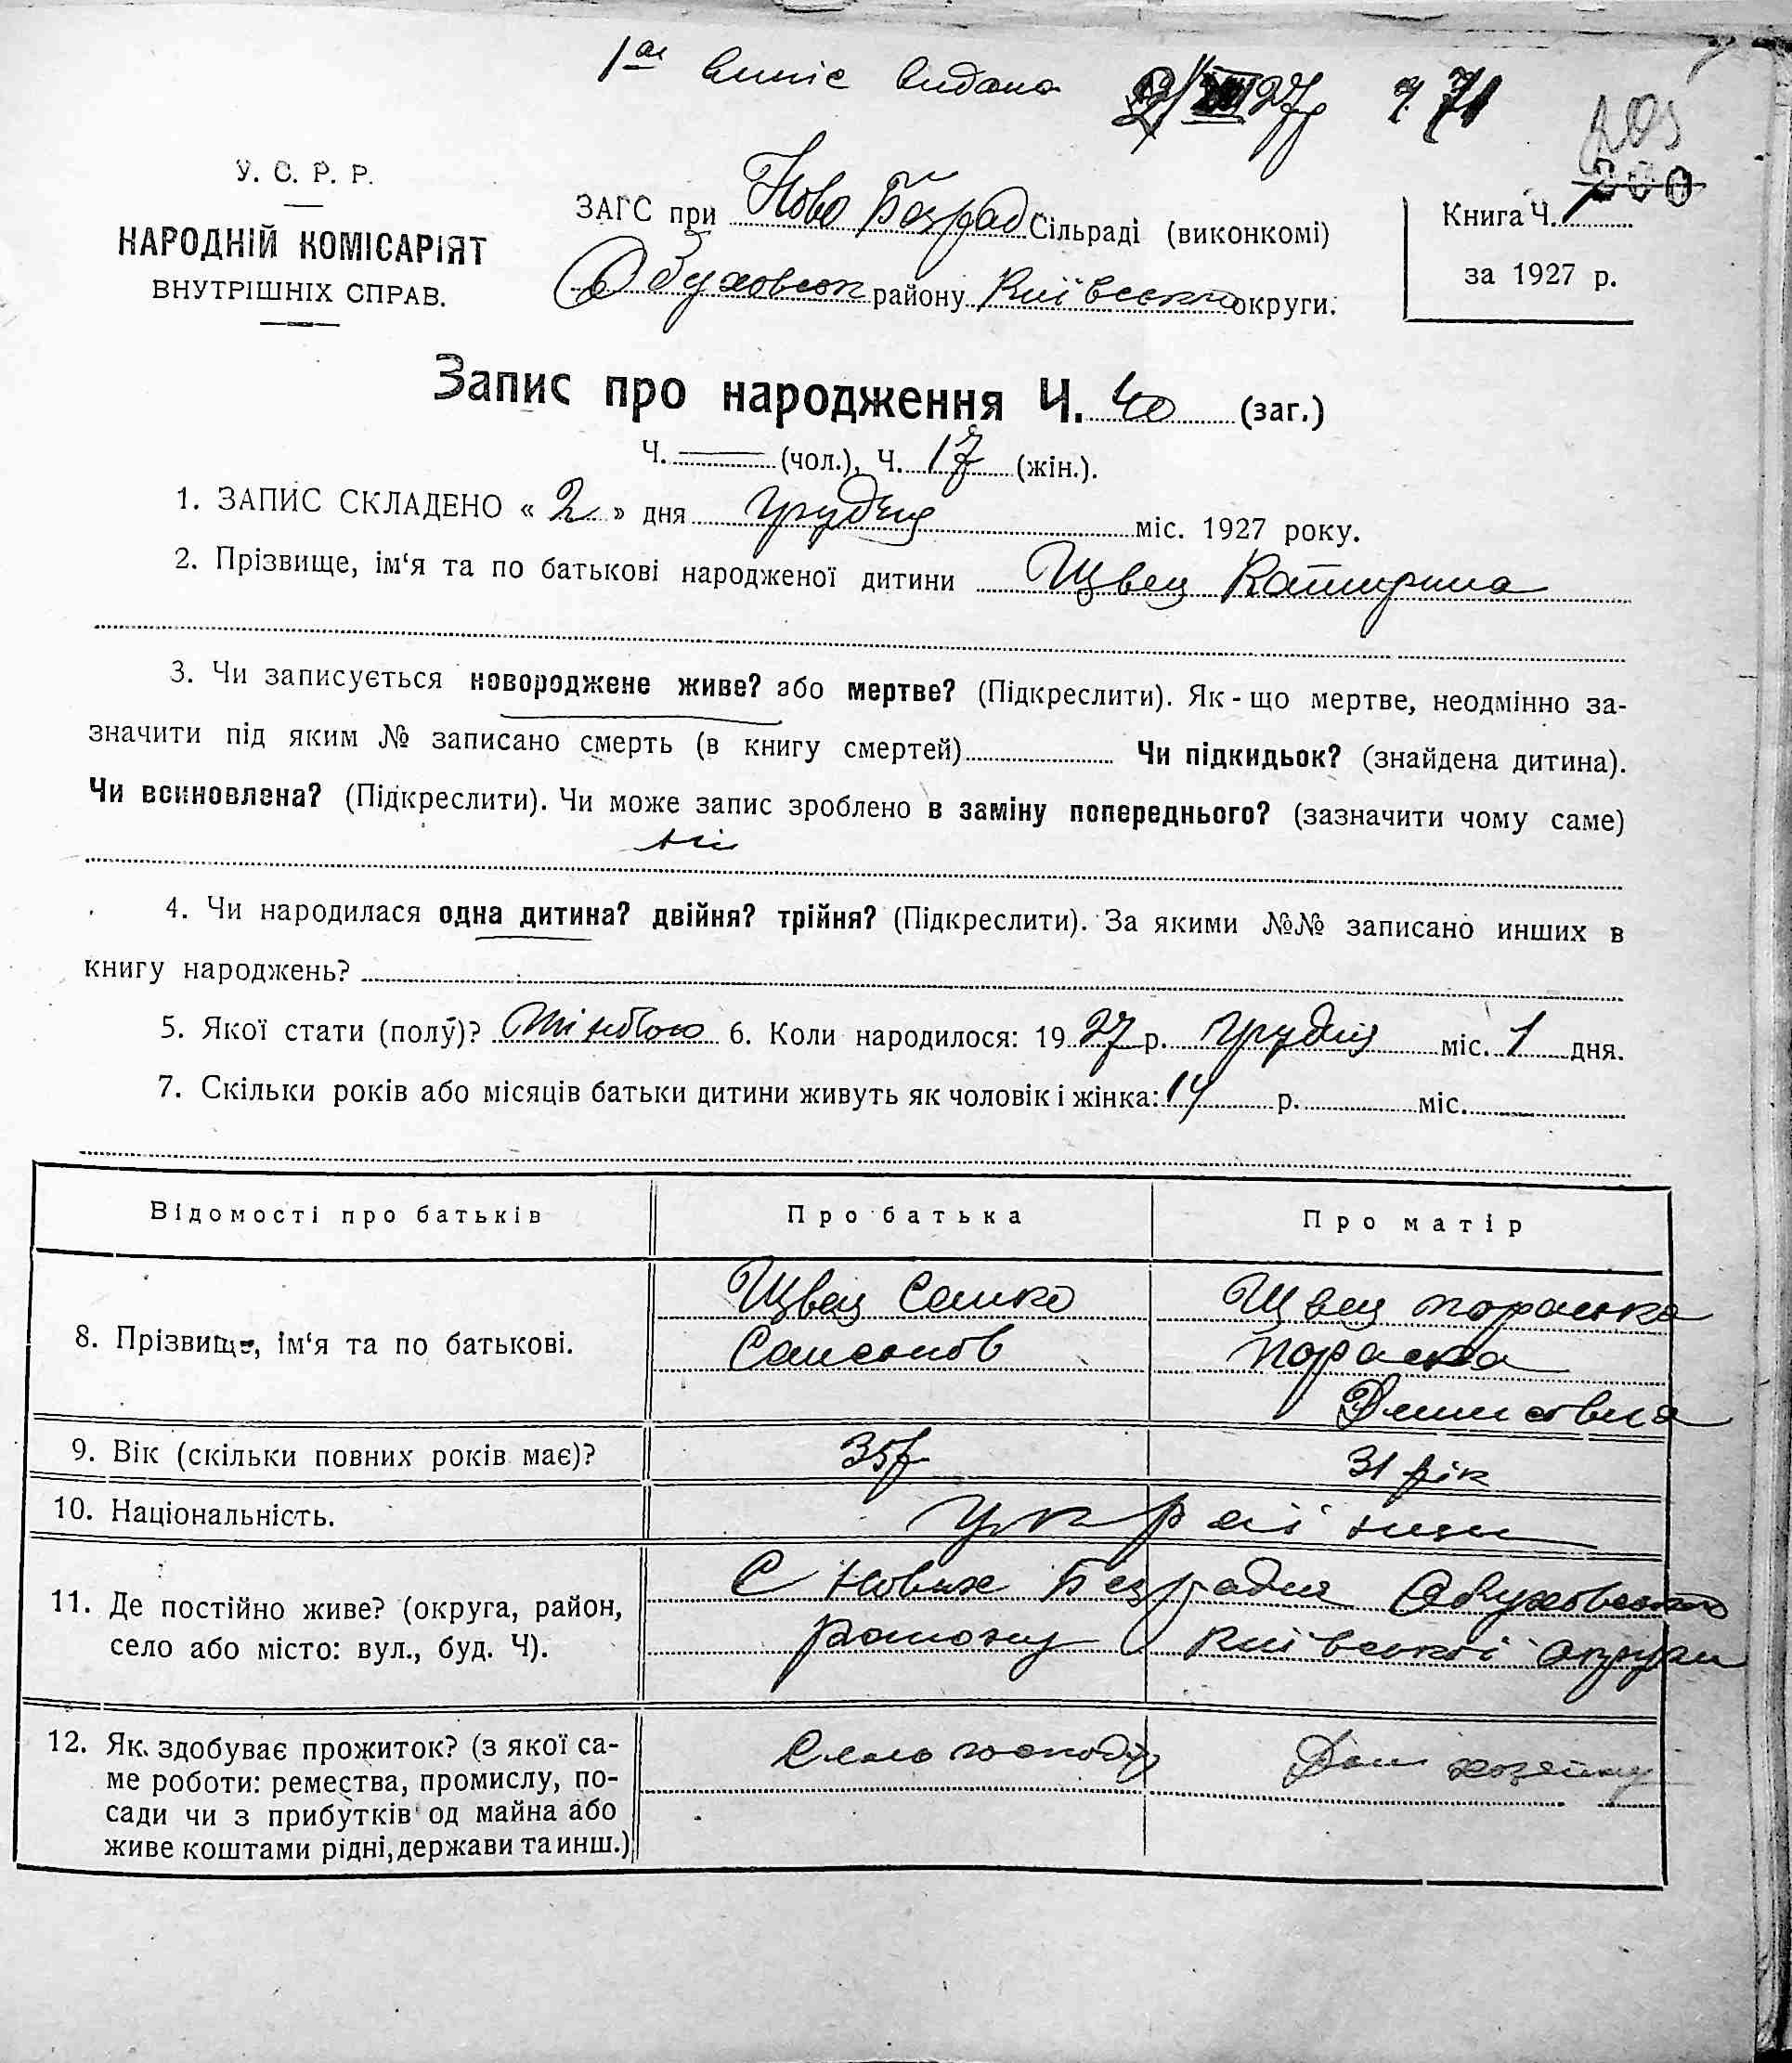 1ая випіс видано 2/XII 27р Ч. 71
У. С. Р. Р.
НАРОДНІЙ КОМІСАРІЯТ
ВНУТРІШНІХ СПРАВ.
ЗАГС при Ново Безрад Сільраді (виконкомі)
Обуховськ району Київсько округи.
Книга Ч.
за 1927 р.
Запис про народження Ч. 40 (заг.)
Ч. — (чол.), Ч. 17 (жін.).
1. ЗАПИС СКЛАДЕНО « 2 » дня грудня міс. 1927 року.
2. Прізвище, ім‘я та по батькові народженої дитини Швец Катирина
3. Чи записується новороджене живе? або мертве? (Підкреслити). Як-що мертве, неодмінно за-
значити під яким № записано смерть (в книгу смертей) Чи підкидьок? (знайдена дитина).
Чи всиновлена? (Підкреслити). Чи може запис зроблено в заміну попереднього? (зазначити чому саме)
ні
4. Чи народилася одна дитина? двійня? трійня? (Підкреслити). За якими №№ записано инших в
книгу народжень?
5. Якої стати (полу)? 6. Коли народилося: 1927 р. грудня міс. 1 дня.
7. Скільки років або місяців батьки дитини живуть як чоловік і жінка: 14 р. міс.
Відомості про батьків Про батька Про матір
8. Прізвище, ім‘я та по батькові.
Швец Сашко
Самсонов
Швец
Пораска
9. Вік (скільки повних років має)? 35р 31 рік
10. Національність. Українци
11. Де постійно живе? (округа, район,
село або місто: вул., буд. Ч).
С Нових Безрадич Обуховсько
району Київської округи
12. Як здобуває прожиток? (з якої са-
ме роботи: ремества, промислу, по-
сади чи з прибутків од майна або
живе коштами рідні, держави та инш.)
Сельс господ
Дом хозяйка